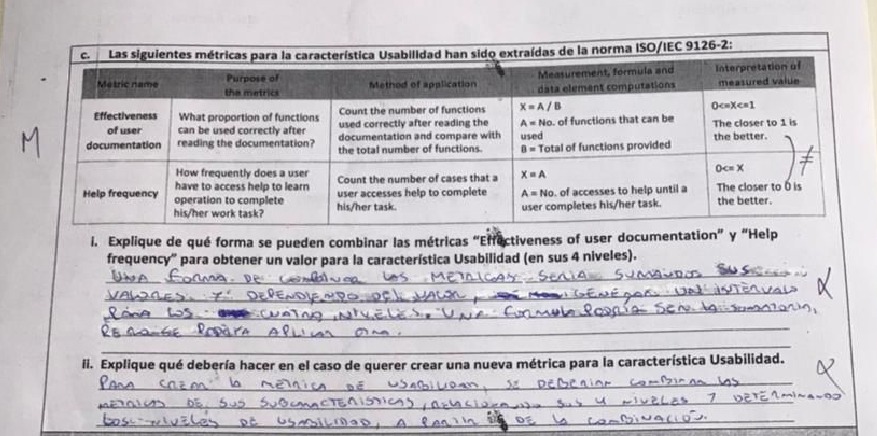 c. Las siguientes métricas para la característica Usabilidad han sido extraídas de la norma ISO/IEC 9126-2:
Metric name
Purpose of
the metrics
Method of application
Measurement, formula and
data element computations
Interpretation of
measured value
M
Effectiveness
of user
documentation
What proportion of functions
can be used correctly after
reading the documentation?
Count the number of functions
used correctly after reading the
documentation and compare with
the total number of functions.
X = A / B
A = No. of functions that can be
used
B = Total of functions provided
0<=X<=1
The closer to 1 is
the better.
Help frequency
How frequently does a user
have to access help to learn
operation to complete
his/her work task?
Count the number of cases that a
user accesses help to complete
his/her task.
X = A
A = No. of accesses to help until a
user completes his/her task.
0<= X
The closer to 0 is
the better.
≠
i. Explique de qué forma se pueden combinar las métricas "Effectiveness of user documentation" y "Help
frequency" para obtener un valor para la característica Usabilidad (en sus 4 niveles).
UNA forma de combinar las METRICAS SERIA SUMANDO SUS
VALORES Y DEPENDIENDO DEL VALOR, GENERAR UN INTERVALO
PARA LOS CUATRO NIVELES. UNA formula PODRIA SER la sumatoria,
PODRA APLICAR
ii. Explique qué debería hacer en el caso de querer crear una nueva métrica para la característica Usabilidad.
PARA CREAR la METRICA DE USABILIDAD, SE DEBERIAN combinar las
METRICAS DE SUS SUBCARACTERISTICAS, RELACIONANDO SUS 4 NIVELES Y DETERMINANDO
los NIVELES DE USABILIDAD, A PARTIR DE LA COMBINACION.